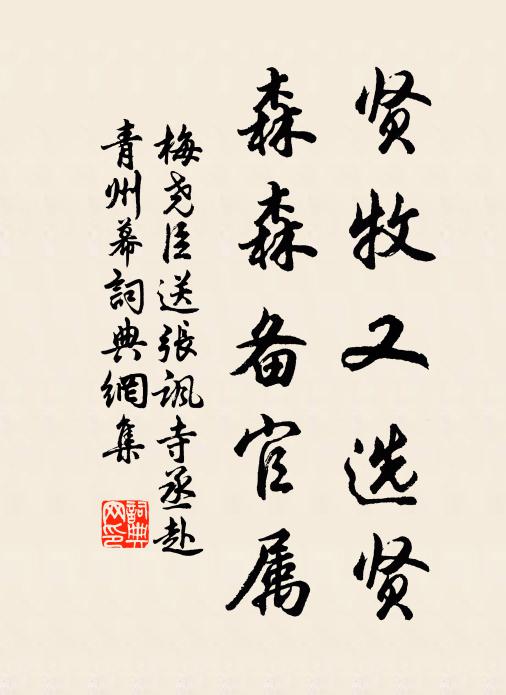 贤牧又选贤
森森备官属
梅尧臣送張諷寺丞赴
青州幕詞典網集
詞典网印